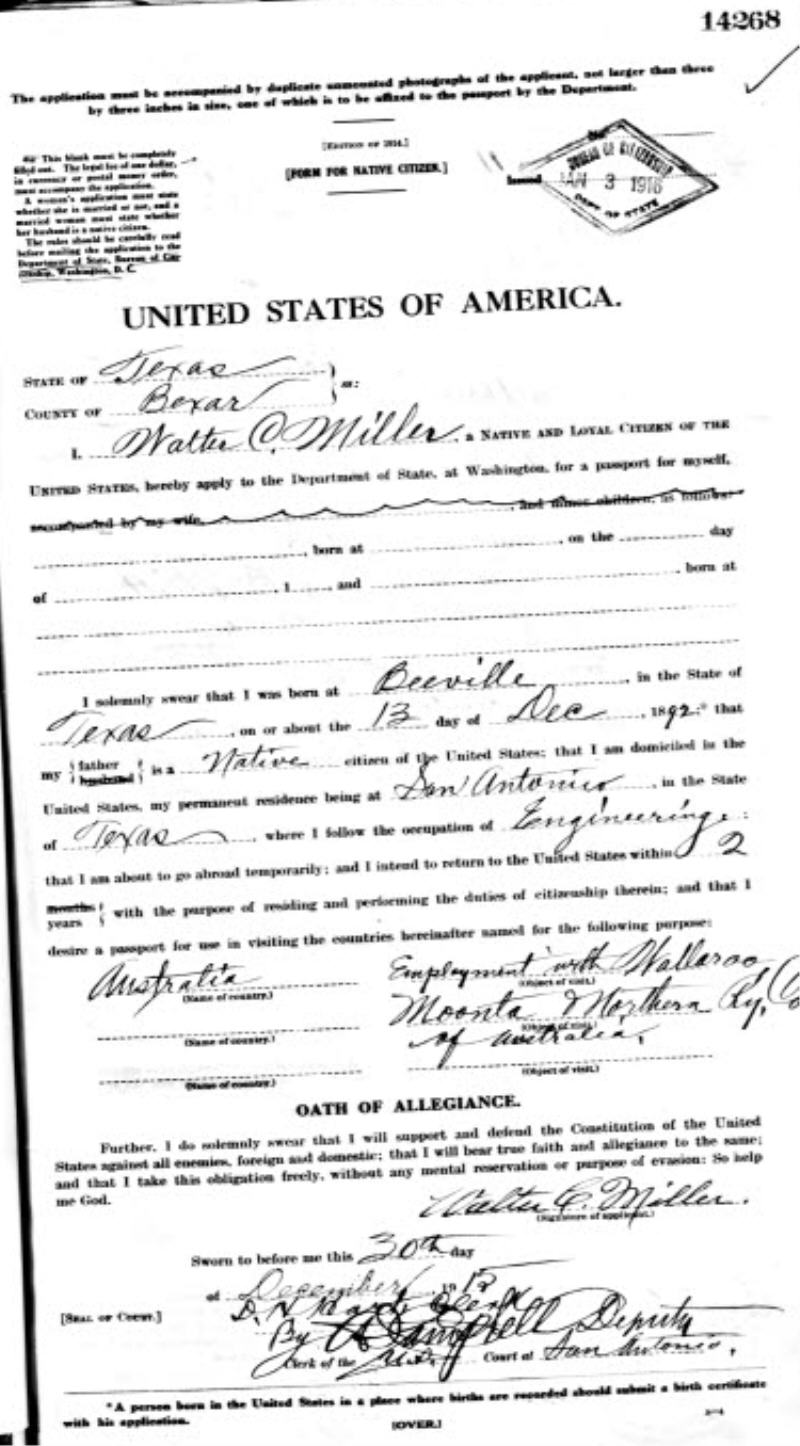 14268
The application must be accompanied by duplicate unmounted photographs of the applicant, not larger than three
by three inches in size, one of which is to be affixed to the passport by the Department.
This blank must be completely
filled out. The legal fee of one dollar,
in currency or postal money order,
must accompany the application.
A woman's application must state
whether she is married or not, and a
married woman must state whether
her husband is a native citizen.
The rules should be carefully read
before mailing the application to the
Department of State, Bureau of Citi-
zenship, Washington, D. C.
[EDITION OF 1914.]
[FORM FOR NATIVE CITIZEN.]
Issued
BUREAU OF CITIZENSHIP
JAN 3 1916
DEPT OF STATE
UNITED STATES OF AMERICA.
STATE OF Texas
COUNTY OF Bexar } ss:
I, Walter C. Miller, a NATIVE AND LOYAL CITIZEN OF THE
UNITED STATES, hereby apply to the Department of State, at Washington, for a passport for myself,
accompanied by my wife, , and minor children, as follows:
, born at , on the day
of , 1 , and , born at
I solemnly swear that I was born at Beeville, in the State of
Texas, on or about the 13 day of Dec, 1892;* that
my { father husband } is a Native citizen of the United States; that I am domiciled in the
United States, my permanent residence being at San Antonio, in the State
of Texas, where I follow the occupation of Engineering;
that I am about to go abroad temporarily; and I intend to return to the United States within 2
{ months years } with the purpose of residing and performing the duties of citizenship therein; and that I
desire a passport for use in visiting the countries hereinafter named for the following purpose:
Australia Employment with Wallaroo
(Name of country.) (Object of visit.)
Moonta Northern Ry, Co
(Name of country.) (Object of visit.)
of Australia,
(Name of country.) (Object of visit.)
OATH OF ALLEGIANCE.
Further, I do solemnly swear that I will support and defend the Constitution of the United
States against all enemies, foreign and domestic; that I will bear true faith and allegiance to the same;
and that I take this obligation freely, without any mental reservation or purpose of evasion: So help
me God.
Walter C. Miller.
(Signature of applicant.)
Sworn to before me this 30th day
of December, 1915
[SEAL OF COURT.] D. H. Clerk
By Campbell Deputy
Clerk of the U.S. Court at San Antonio,
*A person born in the United States in a place where births are recorded should submit a birth certificate
with his application.
[OVER.]